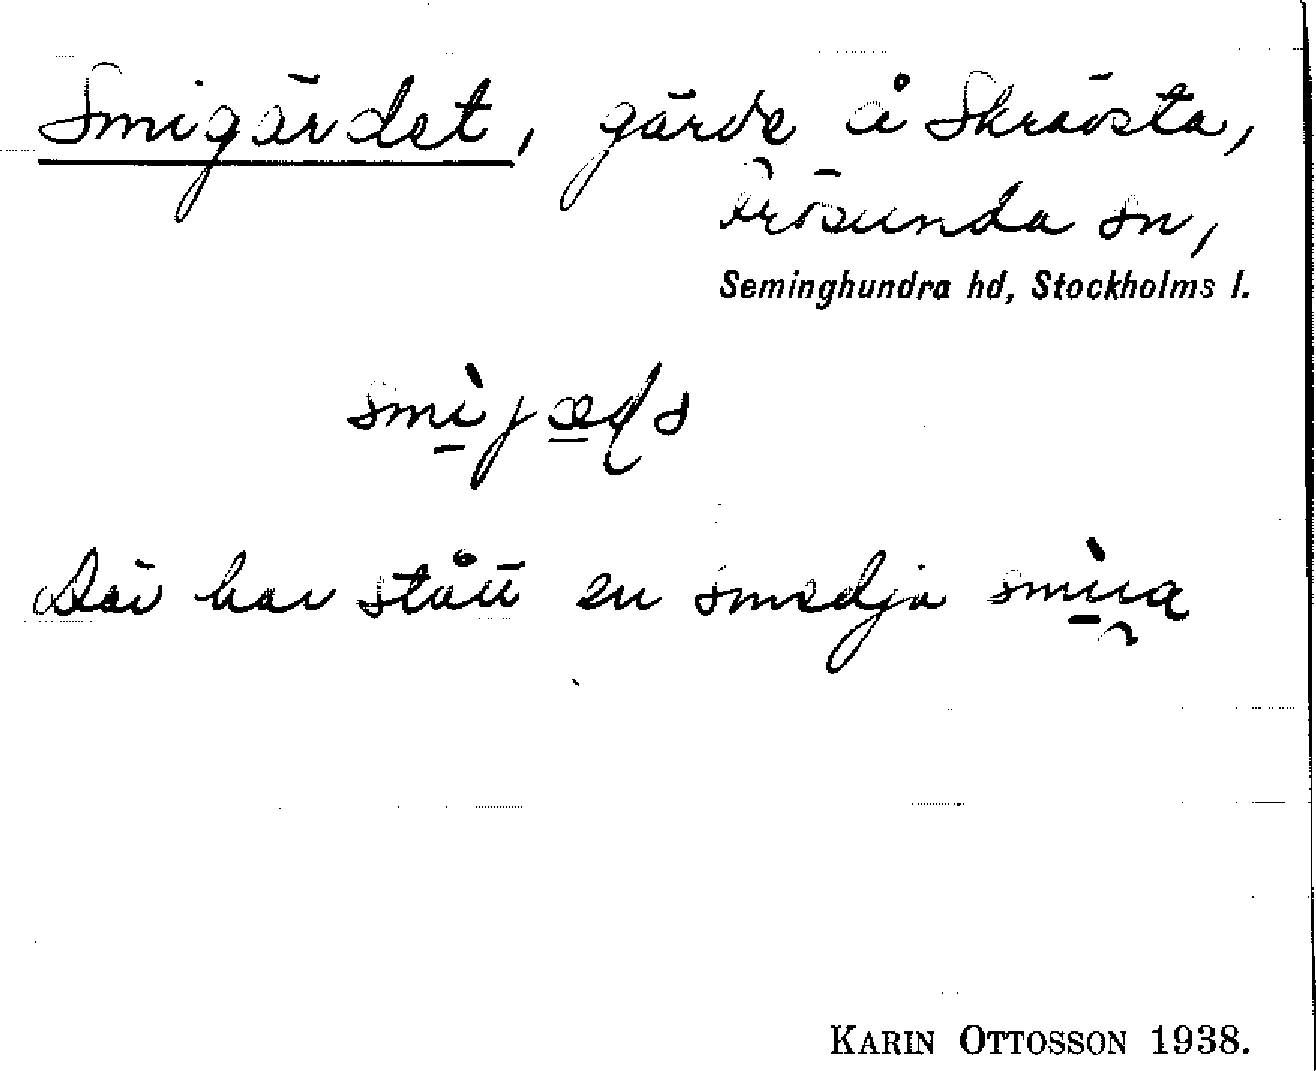 Smigärdet, gärde å Skrävsta,
Orösunda sn,
Seminghundra hd, Stockholms l.
Där har stått en smedja
KARIN OTTOSSON 1938.